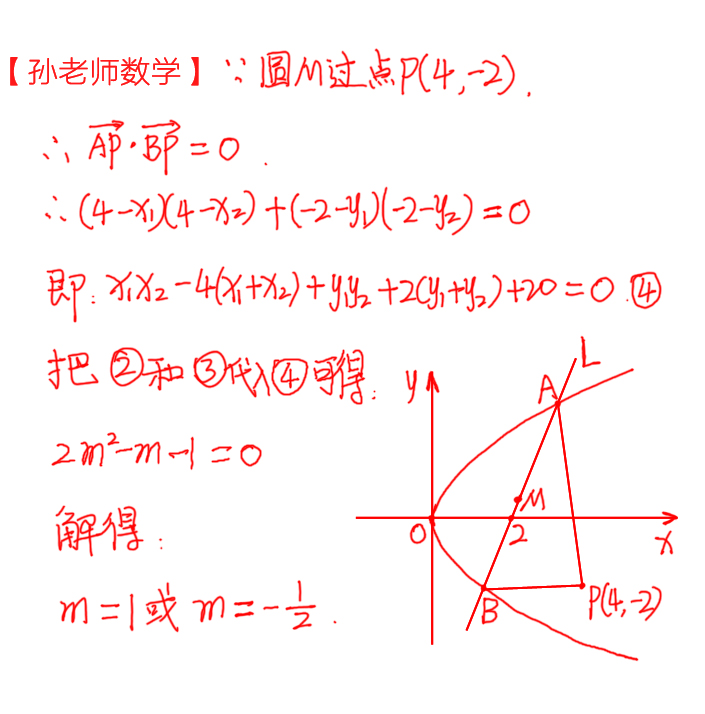 【孙老师数学】∵圆M过点P(4,-2).
∴ \overrightarrow{AP}·\overrightarrow{BP}=0.
∴(4-x₁)(4-x₂)+(-2-y₁)(-2-y₂)=0
即:x₁x₂-4(x₁+x₂)+y₁y₂+2(y₁+y₂)+20=0.④
把②和③代入④可得:
2m²-m-1=0
解得:
m=1或m=-\frac{1}{2}.
L
y
A
M
O
2
x
B
P(4,-2)